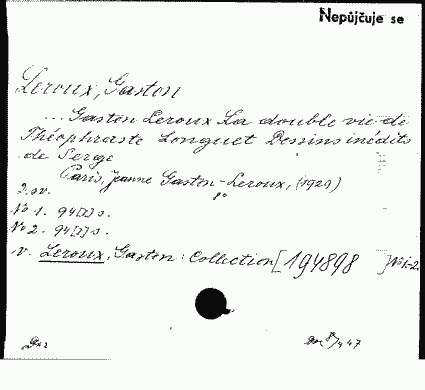 Nepůjčuje se
Leroux, Gaston
... Gaston Leroux La double vie de
Théophraste Longuet Dessins inédits
de Serge
Paris, Jeanne Gaston-Leroux, (1929)
2 sv. 8°
No 1. 94[I] s.
No 2. 94[I] s.
v. Leroux, Gaston: Collection [194898 ] No 1-2.